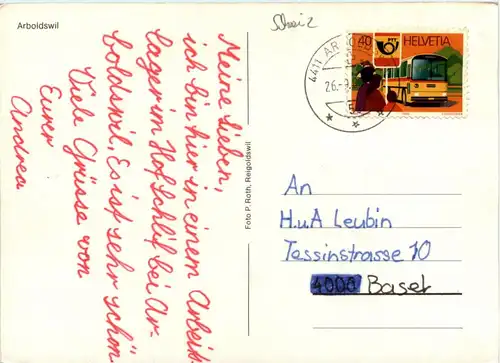 Arboldswil
Schweiz
Meine Lieben,
ich bin hier in einem Arbeits
lager im Hof Schlif bei Ar-
boldswil. Es ist sehr schön
Viele Grüsse von
Eurer
Andrea
Foto P. Roth, Reigoldswil
4411 AR
26.-9
40
PTT
HELVETIA
An
H.u.A Leubin
Tessinstrasse 10
4000 Basel